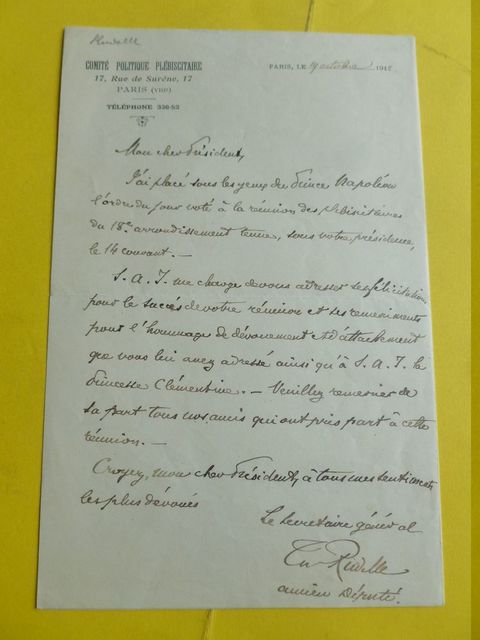 Rudelle
COMITÉ POLITIQUE PLÉBISCITAIRE
17, Rue de Surène, 17
PARIS (VIIIe)
TÉLÉPHONE 336-53
PARIS, LE 19 octobre 191
Mon cher Président,
J'ai placé sous les yeux du Prince Napoléon
l'ordre du jour voté à la réunion des plébiscitaires
du 18e arrondissement tenue, sous votre présidence,
le 14 courant. —
S. A. I. me charge de vous adresser ses félicitations
pour le succès de votre réunion et ses remerciments
pour l'hommage de dévouement et d'attachement
que vous lui avez adressé ainsi qu'à S. A. I. la
Princesse Clémentine. — Veuillez remercier de
sa part tous nos amis qui ont pris part à cette
réunion. —
Croyez, mon cher Président, à tous mes sentiments
les plus dévoués
Le Secrétaire général
Rudelle
ancien Député.